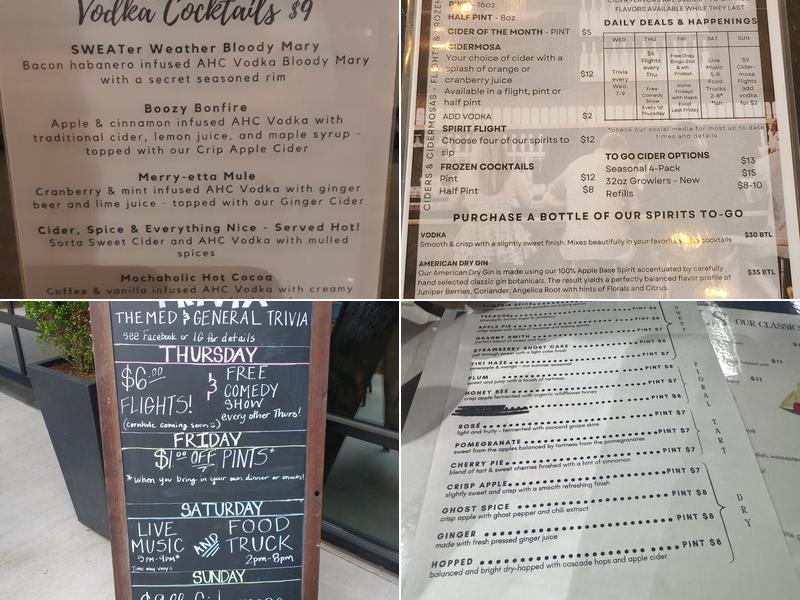 Vodka Cocktails $9
SWEATer Weather Bloody Mary
Bacon habanero infused AHC Vodka Bloody Mary
with a secret seasoned rim
Boozy Bonfire
Apple & cinnamon infused AHC Vodka with
traditional cider, lemon juice, and maple syrup -
topped with our Crip Apple Cider
Merry-etta Mule
Cranberry & mint infused AHC Vodka with ginger
beer and lime juice - topped with our Ginger Cider
Cider, Spice & Everything Nice - Served Hot!
Sorta Sweet Cider and AHC Vodka with mulled
spices
Mochaholic Hot Cocoa
Coffee & vanilla infused AHC Vodka with creamy
CIDERS & CIDERMOSAS - FLIGHTS & FROZEN
16oz
HALF PINT - 8oz
CIDER OF THE MONTH - PINT $5
CIDERMOSA
Your choice of cider with a
splash of orange or
cranberry juice $12
Available in a flight, pint or
half pint
ADD VODKA $2
SPIRIT FLIGHT
Choose four of our spirits to $12
sip
FROZEN COCKTAILS
Pint $12
Half Pint $8
FLAVORS AVAILABLE WHILE THEY LAST
DAILY DEALS & HAPPENINGS
WED THU FRI SAT SUN
Trivia
every
Wed.
7-9
$6
Flights
every
Thu
Free
Comedy
Show
Every 1st
Thursday
Free Drag
Bingo 2nd
& 4th
Fridays
Aloha
Fridays
with Hapa
Food
Last Friday
Live
Music
5-9
Food
Trucks
2-8*
*ish
$9
Cider-
mosa
Flights
add
vodka
for $2
*check our social media for most up to date
times and details
TO GO CIDER OPTIONS
Seasonal 4-Pack $13
32oz Growlers - New $15
Refills $8-10
PURCHASE A BOTTLE OF OUR SPIRITS TO-GO
VODKA
Smooth & crisp with a slightly sweet finish. Mixes beautifully in your cocktails $30 BTL
AMERICAN DRY GIN
Our American Dry Gin is made using our 100% Apple Base Spirit accentuated by carefully $35 BTL
hand selected classic gin botanicals. The result yields a perfectly balanced flavor profile of
Juniper Berries, Coriander, Angelica Root with hints of Florals and Citrus.
TRIVIA
THEMED & GENERAL TRIVIA
see Facebook or IG for details
THURSDAY
$6.00 & FREE
COMEDY
FLIGHTS! SHOW
every other Thurs!
(cornhole coming soon :))
FRIDAY
$1.00 OFF PINTS*
*when you bring in your own dinner or snacks!
SATURDAY
LIVE AND FOOD
MUSIC TRUCK
5pm-9pm* 2pm-8pm
times may vary
SUNDAY
PUMPKIN SPICE
TEPACHE
APPLE PIE
GRANNY SMITH PINT $6
STRAWBERRY SHORT CAKE PINT $7
just enough sweet with a light cake finish
TIKI HAZE PINT $7
pineapple & mango - our summer seasonal
PLUM PINT $7
sweet and juicy with a touch of tartness
HONEY BEE PINT $7
crisp apple fermented with organic wildflower honey
ROSÉ PINT $7
light and fruity - fermented with concord grape skins
POMEGRANATE PINT $7
sweet from the apples balanced by tartness from the pomegranates
CHERRY PIE PINT $7
blend of tart & sweet cherries finished with a hint of cinnamon
CRISP APPLE PINT $7
slightly sweet and crisp with a smooth refreshing finish
GHOST SPICE PINT $8
crisp apple with ghost pepper and chili extract
GINGER PINT $8
made with fresh pressed ginger juice
HOPPED PINT $8
balanced and bright dry-hopped with cascade hops and apple cider
SWEET
FLORAL
TART
DRY
OUR CLASSIC
$11
$11